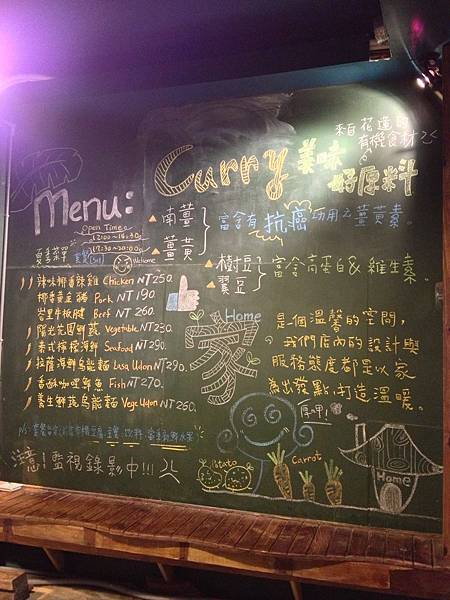 來自花蓮的
有機食材
Curry 美味
好原料
Menu:
Open Time
12:00~14:30
17:30~20:00
Welcome
夏季菜單
南薑
薑黃
富含有抗癌功用之薑黃素。
樹豆
翼豆
富含高蛋白&維生素。
辣味椰香辣雞 Chicken NT250.
Pork NT190.
岩里牛板腱 Beef NT 260.
陽光花園鮮蔬 Vegetable NT230.
泰式檸檬海鮮 Seafood NT290.
拉薩海鮮烏龍麵 Lasa Udon NT290.
香酥咖哩鮮魚 Fish NT270.
養生鮮蔬烏龍麵 Vege Udon NT260.
Home
家
是個溫馨的空間,
我們店內的設計與
服務態度都是以家
為出發點,打造溫暖。
注意!監視錄影中!!!
Potato
Carrot
Home